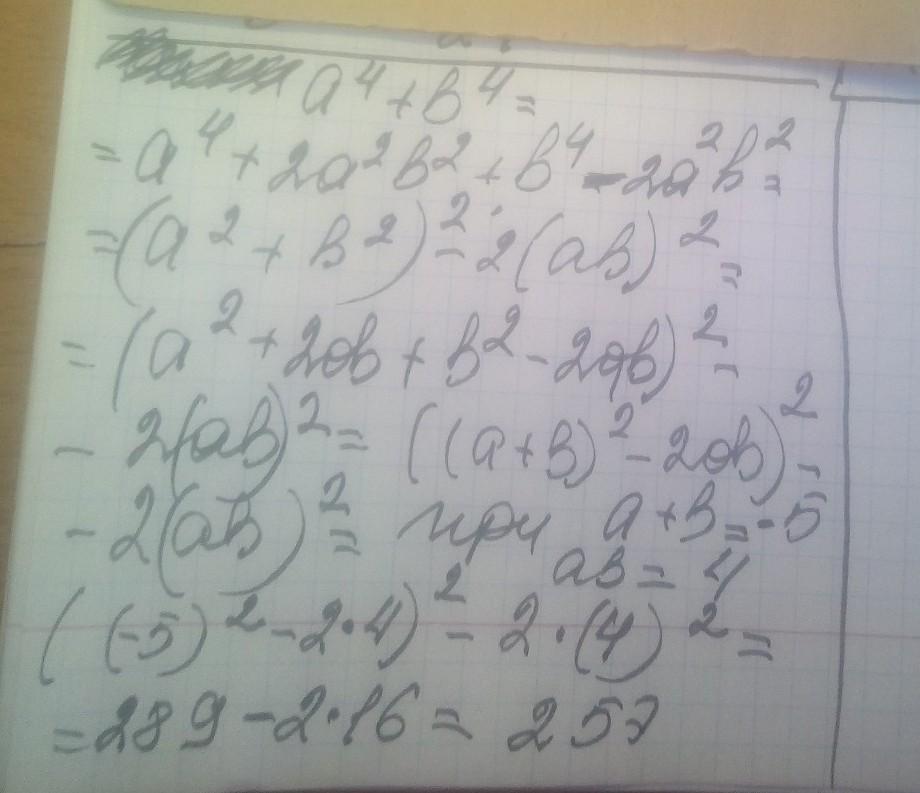 a⁴+b⁴=
=a⁴+2a²b²+b⁴-2a²b²=
=(a²+b²)²-2(ab)²=
=(a²+2ab+b²-2ab)²-
-2(ab)²=((a+b)²-2ab)²-
-2(ab)²= при a+b=-5
ab=4
((-5)²-2·4)²-2·(4)²=
=289-2·16=257